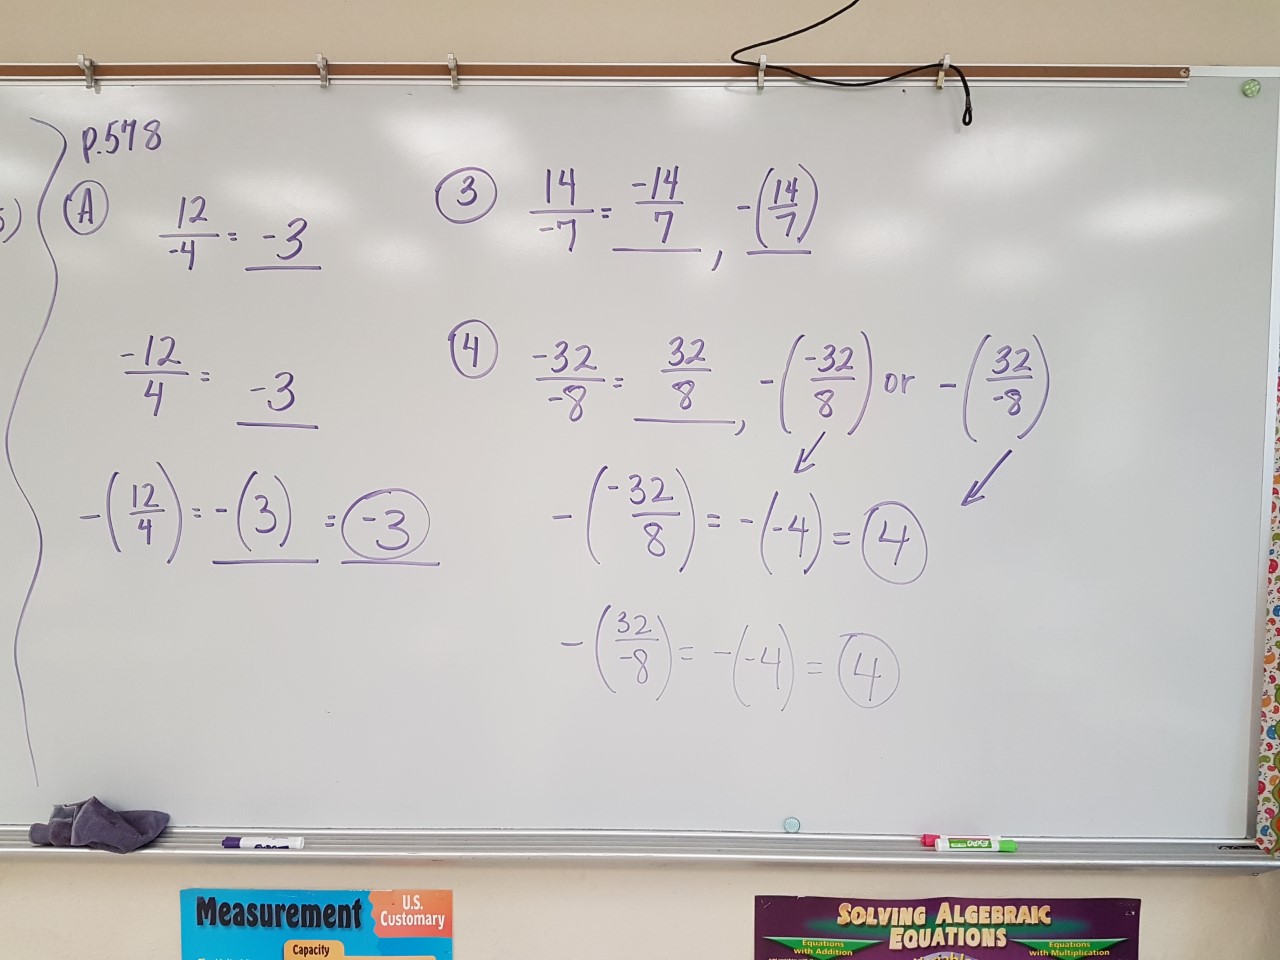 p.578
5)
A
12/-4 = -3
-12/4 = -3
-(12/4) = -(3) = -3
3
14/-7 = -14/7 , -(14/7)
4
-32/-8 = 32/8 , -(-32/8) or -(32/-8)
-(-32/8) = -(-4) = 4
-(32/-8) = -(-4) = 4
EXPO
EXPO
Measurement
U.S.
Customary
Capacity
SOLVING ALGEBRAIC
EQUATIONS
Equations
with Addition
Equations
with Multiplication